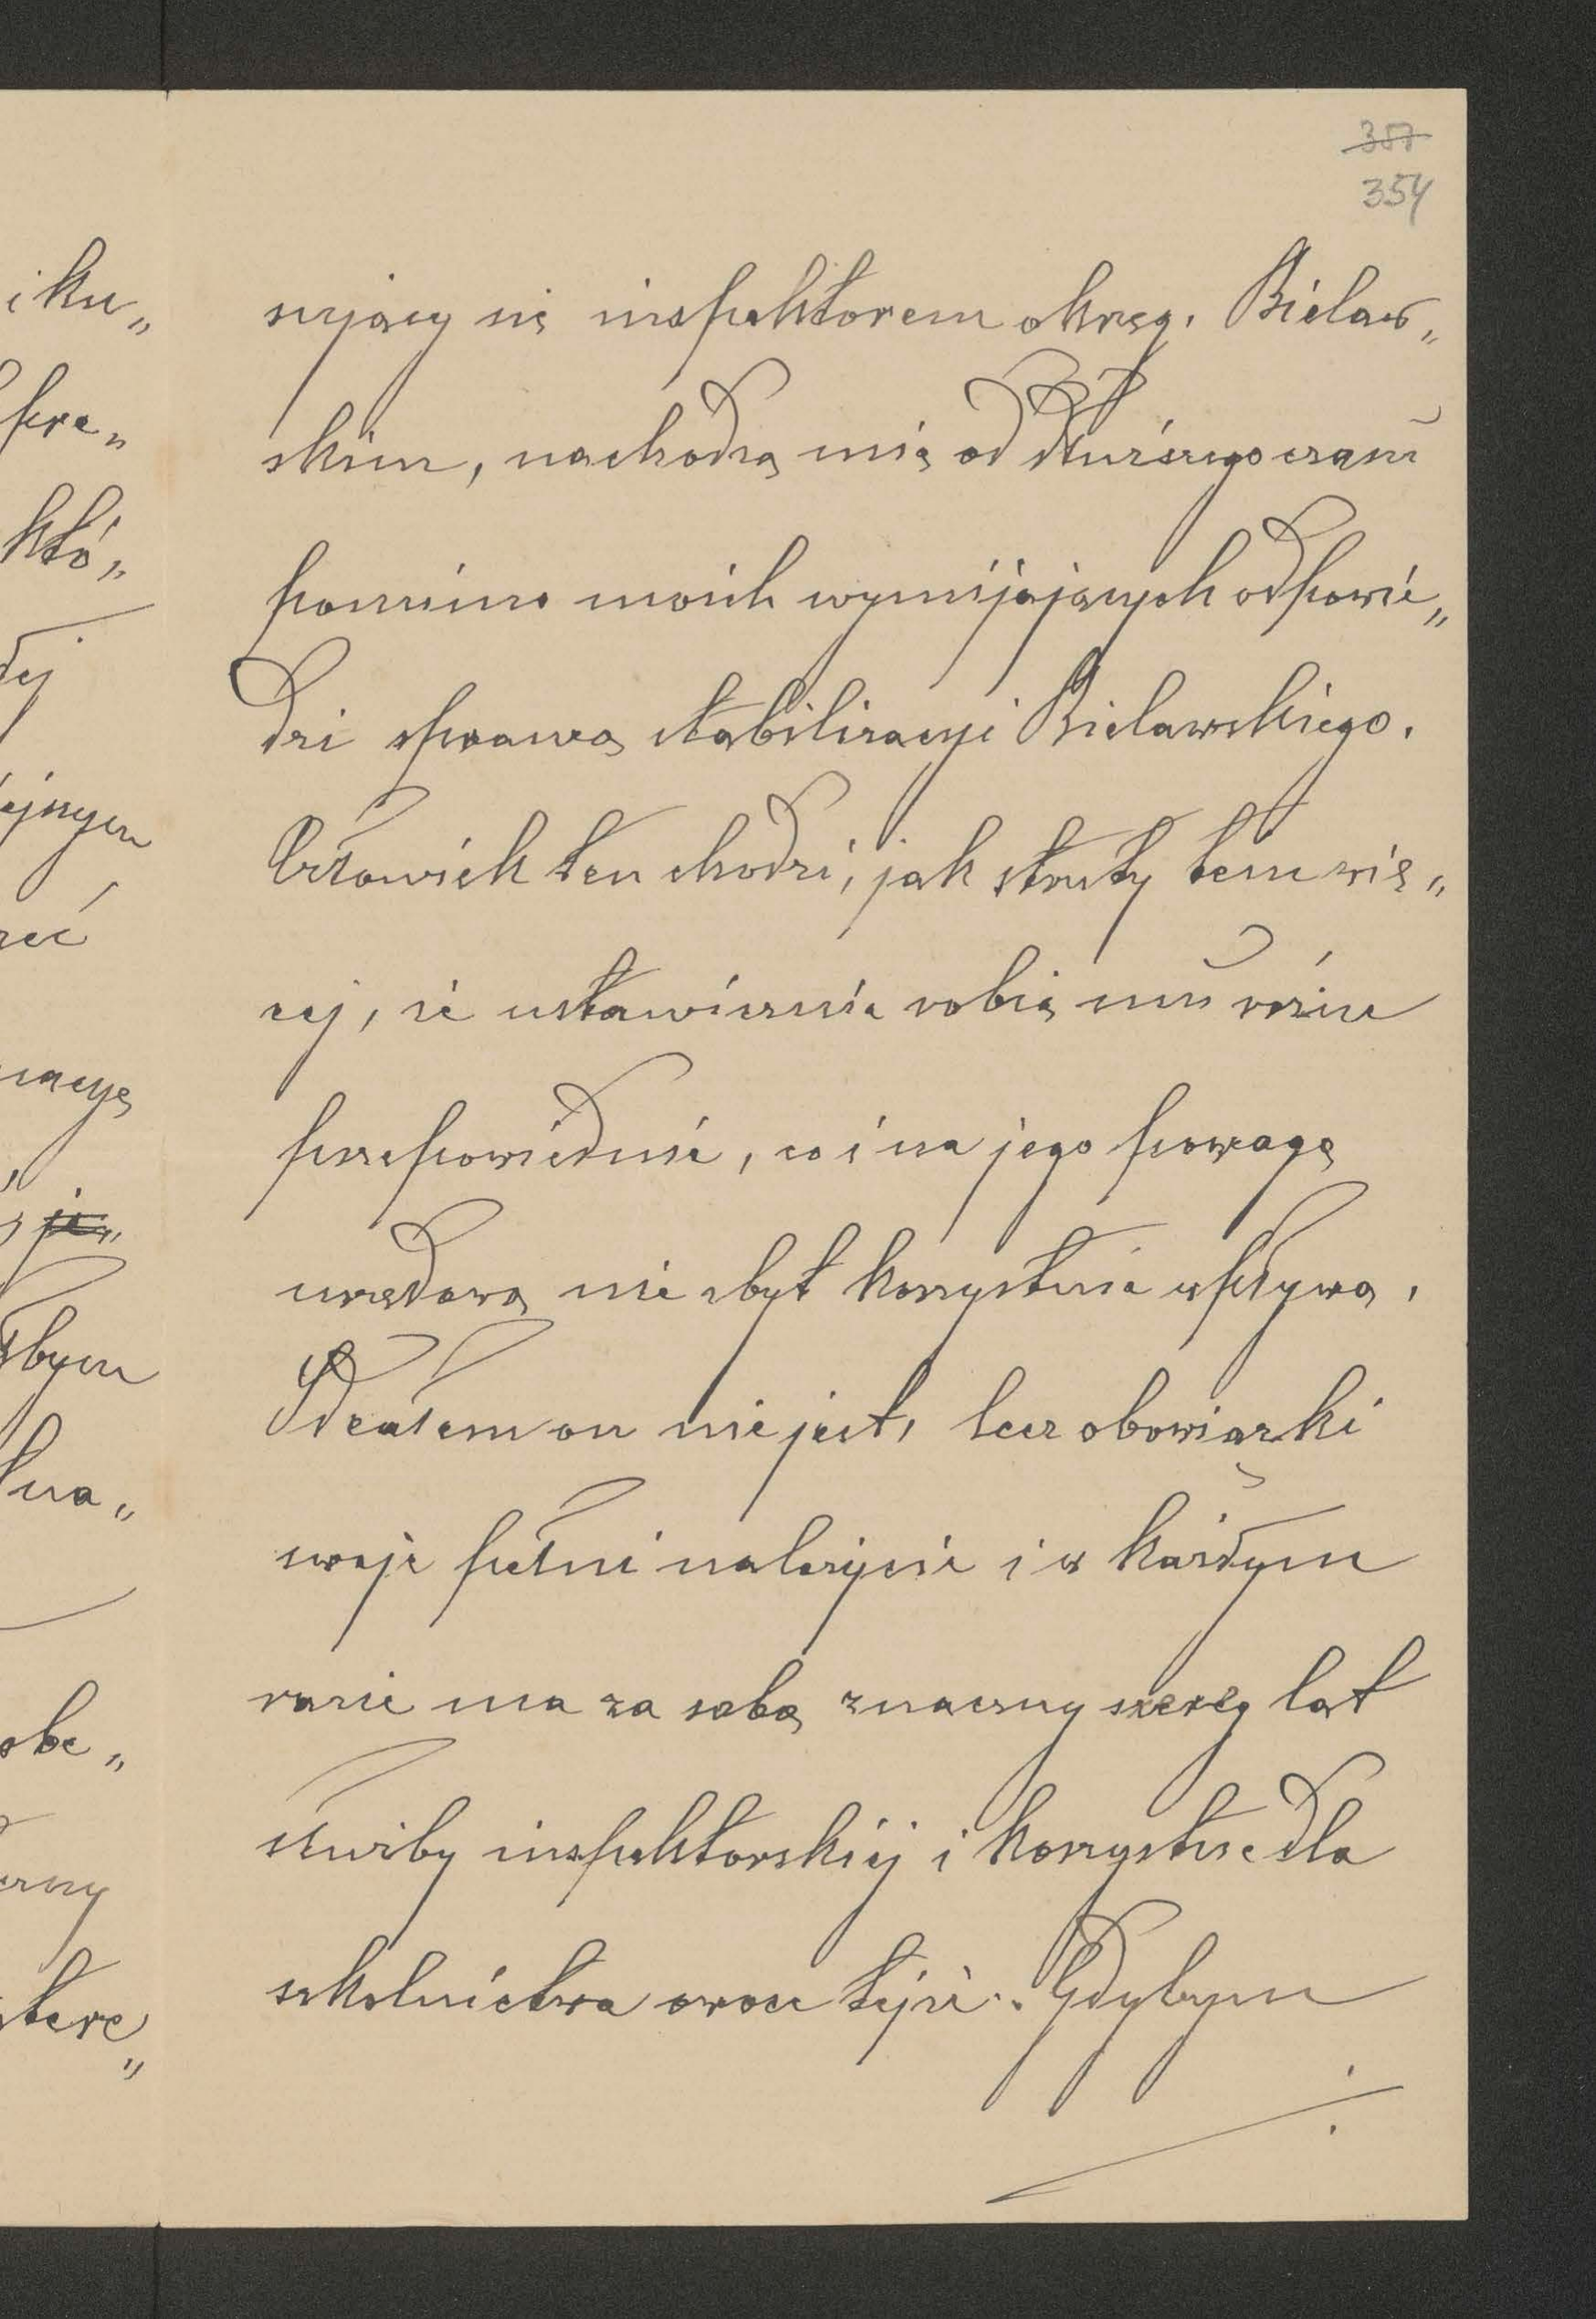 357
354
i ku„
sujący się inspektorem okręg. Bielaw„
skim, nachodzą mię od dłuższego czasu
pomimo moich wymijających odpowie„
dzi sprawą stabilizacyi Bielawskiego.
Człowiek ten chodzi, jak struty tem wię„
cej, że ustawicznie robią mu różne
przepowiednie, co i na jego powagę
urzędową nie zbyt korzystnie wpływa.
Ideałem on nie jest, lecz obowiązki
swoje pełni należycie i w każdym
razie ma za sobą znaczny szereg lat
służby inspektorskiej i korzystne dla
szkolnictwa owoce tejże. Gdybym
któ„
nacyę
je„
bym
obe„